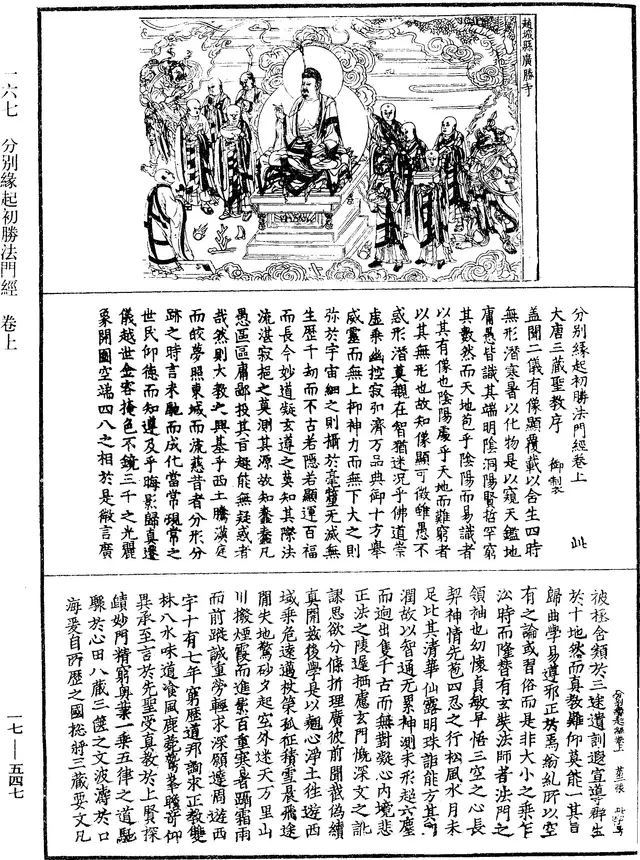 趙城縣廣勝寺
一六七　分別緣起初勝法門經　卷上
分別緣起初勝法門經卷上　此
大唐三藏聖教序　御製
蓋聞二儀有像顯覆載以含生四時
無形潛寒暑以化物是以窺天鑑地
庸愚皆識其端明陰洞陽賢哲罕窮
其數然而天地苞乎陰陽而易識者
以其有像也陰陽處乎天地而難窮者
以其無形也故知像顯可徵雖愚不
惑形潛莫覩在智猶迷況乎佛道崇
虛乘幽控寂弘濟萬品典御十方舉
威靈而無上抑神力而無下大之則
弥於宇宙細之則攝於毫釐无滅無
生歷千劫而不古若隱若顯運百福
而長今妙道凝玄遵之莫知其際法
流湛寂挹之莫測其源故知蠢蠢凡
愚區區庸鄙投其旨趣能無疑或者
哉然則大教之興基乎西土騰漢庭
而皎夢照東域而流慈昔者分形分
跡之時言未馳而成化當常現常之
世民仰德而知遵及乎晦影歸真遷
儀越世金容掩色不鏡三千之光麗
象開圖空端四八之相於是微言廣
彼拯含類於三途遺訓遐宣導群生
於十地然而真教難仰莫能一其旨
歸曲學易遵邪正於焉紛糺所以空
有之論或習俗而是非大小之乘乍
沿時而隆替有玄奘法師者法門之
領袖也幼懷貞敏早悟三空之心長
契神情先苞四忍之行松風水月未
足比其清華仙露明珠詎能方其朗
潤故以智通无累神測未形超六塵
而迥出隻千古而無對凝心內境悲
正法之陵遲栖慮玄門慨深文之訛
謬思欲分條析理廣彼前聞截偽續
真開茲後學是以翹心淨土往遊西
域乘危遠邁杖策孤征積雪晨飛途
間失地驚砂夕起空外迷天万里山
川撥煙霞而進影百重寒暑躡霜雨
而前蹤誠重勞輕求深願達周遊西
宇十有七年窮歷道邦詢求正教雙
林八水味道飡風鹿菀鷲峯瞻奇仰
異承至言於先聖受真教於上賢探
賾妙門精窮奧業一乘五律之道馳
驟於心田八藏三篋之文波濤於口
海爰自所歷之國揔將三藏要文凡
一七——五四七